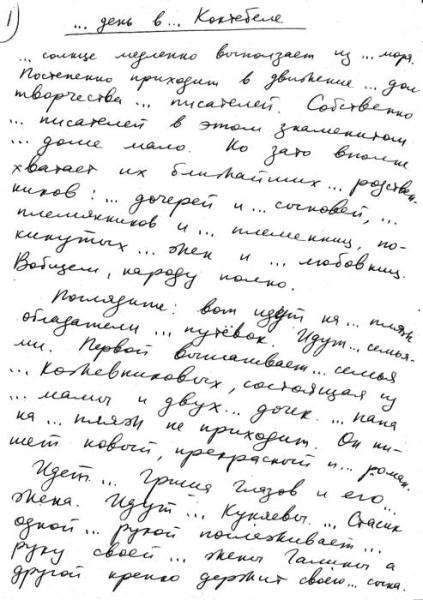 1)
... день в ... Коктебеле
... солнце медленно выползает из ... моря.
Постепенно приходит в движение ... дом
творчества ... писателей. Собственно
... писателей в этом знаменитом
... доме мало. Но зато вполне
хватает их ближайших ... родствен-
ников: ... дочерей и ... сыновей, ...
племянников и ... племенниц, по-
кинутых ... жен и ... любовниц.
Вобщем, народу полно.
Поглядите: вот идут на ... пляж
обладатели ... путёвок. Идут ... семья-
ми. Первой вышагивает ... семья
... Кожевниковых, состоящая из
... мамы и двух ... дочек. ... папа
на ... пляж не приходит. Он пи-
шет новый, прекрасный и ... роман.
Идет ... Гриша Глазов и его ...
жена. Идут ... Куняевы. ... Стасик
одной ... рукой поглаживает ...
руку своей ... жены Галины а
другой крепко держит свою ... сына.